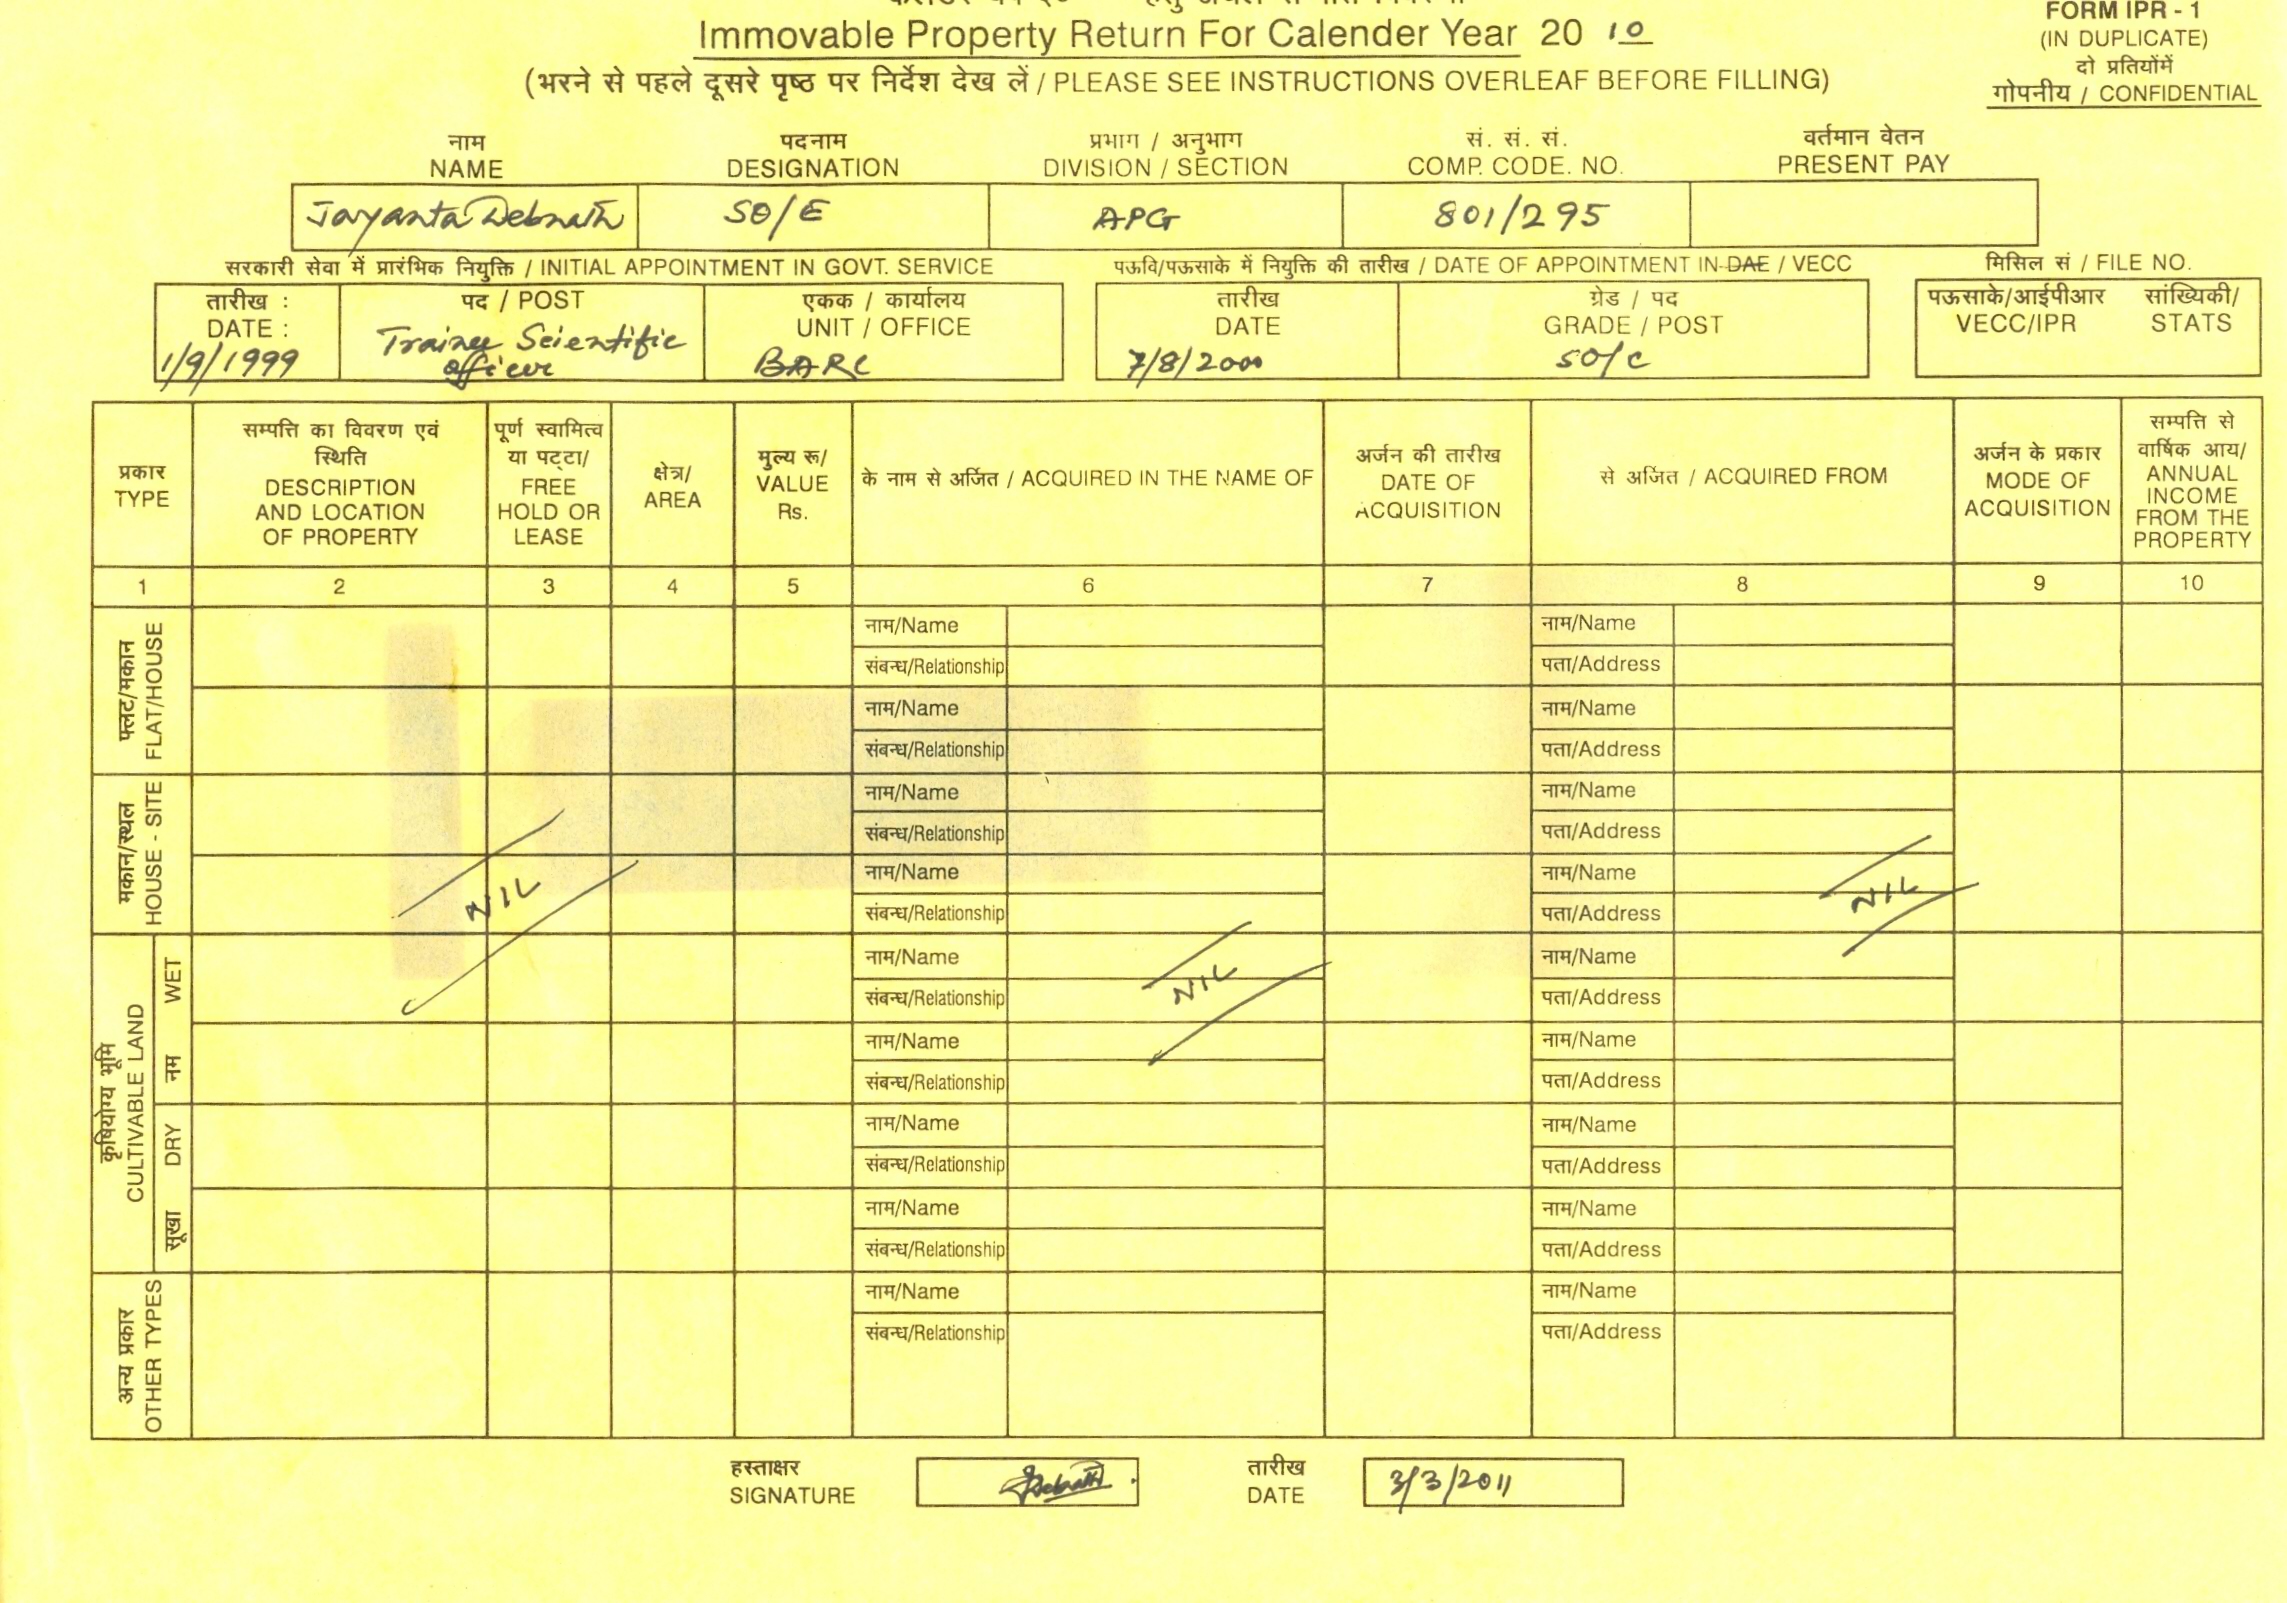 Immovable Property Return For Calender Year 20 10
(भरने से पहले दूसरे पृष्ठ पर निर्देश देख लें / PLEASE SEE INSTRUCTIONS OVERLEAF BEFORE FILLING)
FORM IPR - 1
(IN DUPLICATE)
दो प्रतियोंमें
गोपनीय / CONFIDENTIAL
नाम
NAME
पदनाम
DESIGNATION
प्रभाग / अनुभाग
DIVISION / SECTION
सं. सं. सं.
COMP. CODE. NO.
वर्तमान वेतन
PRESENT PAY
Jayanta Debnath
SO/E
APG
801/295
सरकारी सेवा में प्रारंभिक नियुक्ति / INITIAL APPOINTMENT IN GOVT. SERVICE
पऊवि/पऊसाके में नियुक्ति की तारीख / DATE OF APPOINTMENT IN DAE / VECC
मिसिल सं / FILE NO.
तारीख :
DATE :
1/9/1999
पद / POST
Trainee Scientific
officer
एकक / कार्यालय
UNIT / OFFICE
BARC
तारीख
DATE
7/8/2000
ग्रेड / पद
GRADE / POST
SO/C
पऊसाके/आईपीआर
VECC/IPR
सांख्यिकी/
STATS
प्रकार
TYPE
सम्पत्ति का विवरण एवं
स्थिति
DESCRIPTION
AND LOCATION
OF PROPERTY
पूर्ण स्वामित्व
या पट्टा/
FREE
HOLD OR
LEASE
क्षेत्र/
AREA
मुल्य रू/
VALUE
Rs.
के नाम से अर्जित / ACQUIRED IN THE NAME OF
अर्जन की तारीख
DATE OF
ACQUISITION
से अर्जित / ACQUIRED FROM
अर्जन के प्रकार
MODE OF
ACQUISITION
सम्पत्ति से
वार्षिक आय/
ANNUAL
INCOME
FROM THE
PROPERTY
1 2 3 4 5 6 7 8 9 10
फ्लैट/मकान
FLAT/HOUSE
नाम/Name
नाम/Name
संबन्ध/Relationship
पता/Address
नाम/Name
नाम/Name
संबन्ध/Relationship
पता/Address
मकान/स्थल
HOUSE - SITE
नाम/Name
नाम/Name
संबन्ध/Relationship
पता/Address
नाम/Name
नाम/Name
NIL
NIL
संबन्ध/Relationship
पता/Address
कृषियोग्य भूमि
CULTIVABLE LAND
WET
नम
नाम/Name
नाम/Name
NIL
संबन्ध/Relationship
पता/Address
नाम/Name
नाम/Name
संबन्ध/Relationship
पता/Address
DRY
सूखा
नाम/Name
नाम/Name
संबन्ध/Relationship
पता/Address
नाम/Name
नाम/Name
संबन्ध/Relationship
पता/Address
अन्य प्रकार
OTHER TYPES
नाम/Name
नाम/Name
संबन्ध/Relationship
पता/Address
हस्ताक्षर
SIGNATURE
JDebnath
तारीख
DATE
3/3/2011